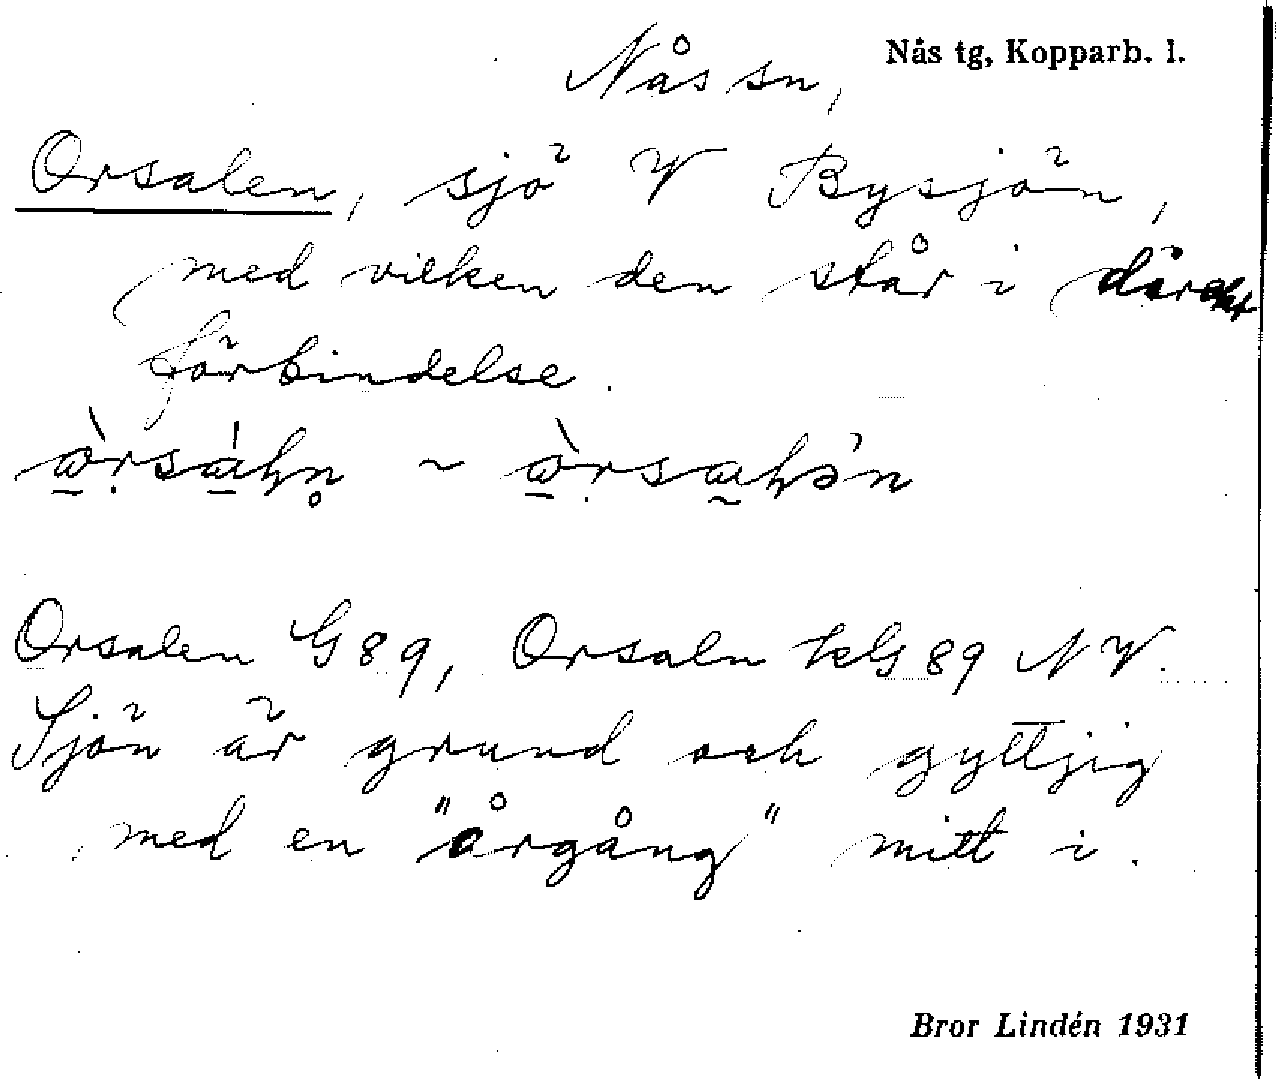 Nås sn, Nås tg, Kopparb. l.
Orsalen, sjö V Bysjön,
med vilken den står i direkt
förbindelse.
Orsalen G89, Orsaln kG89 NV.
Sjön är grund och gyttjig
med en "årgång" mitt i.
Bror Lindén 1931